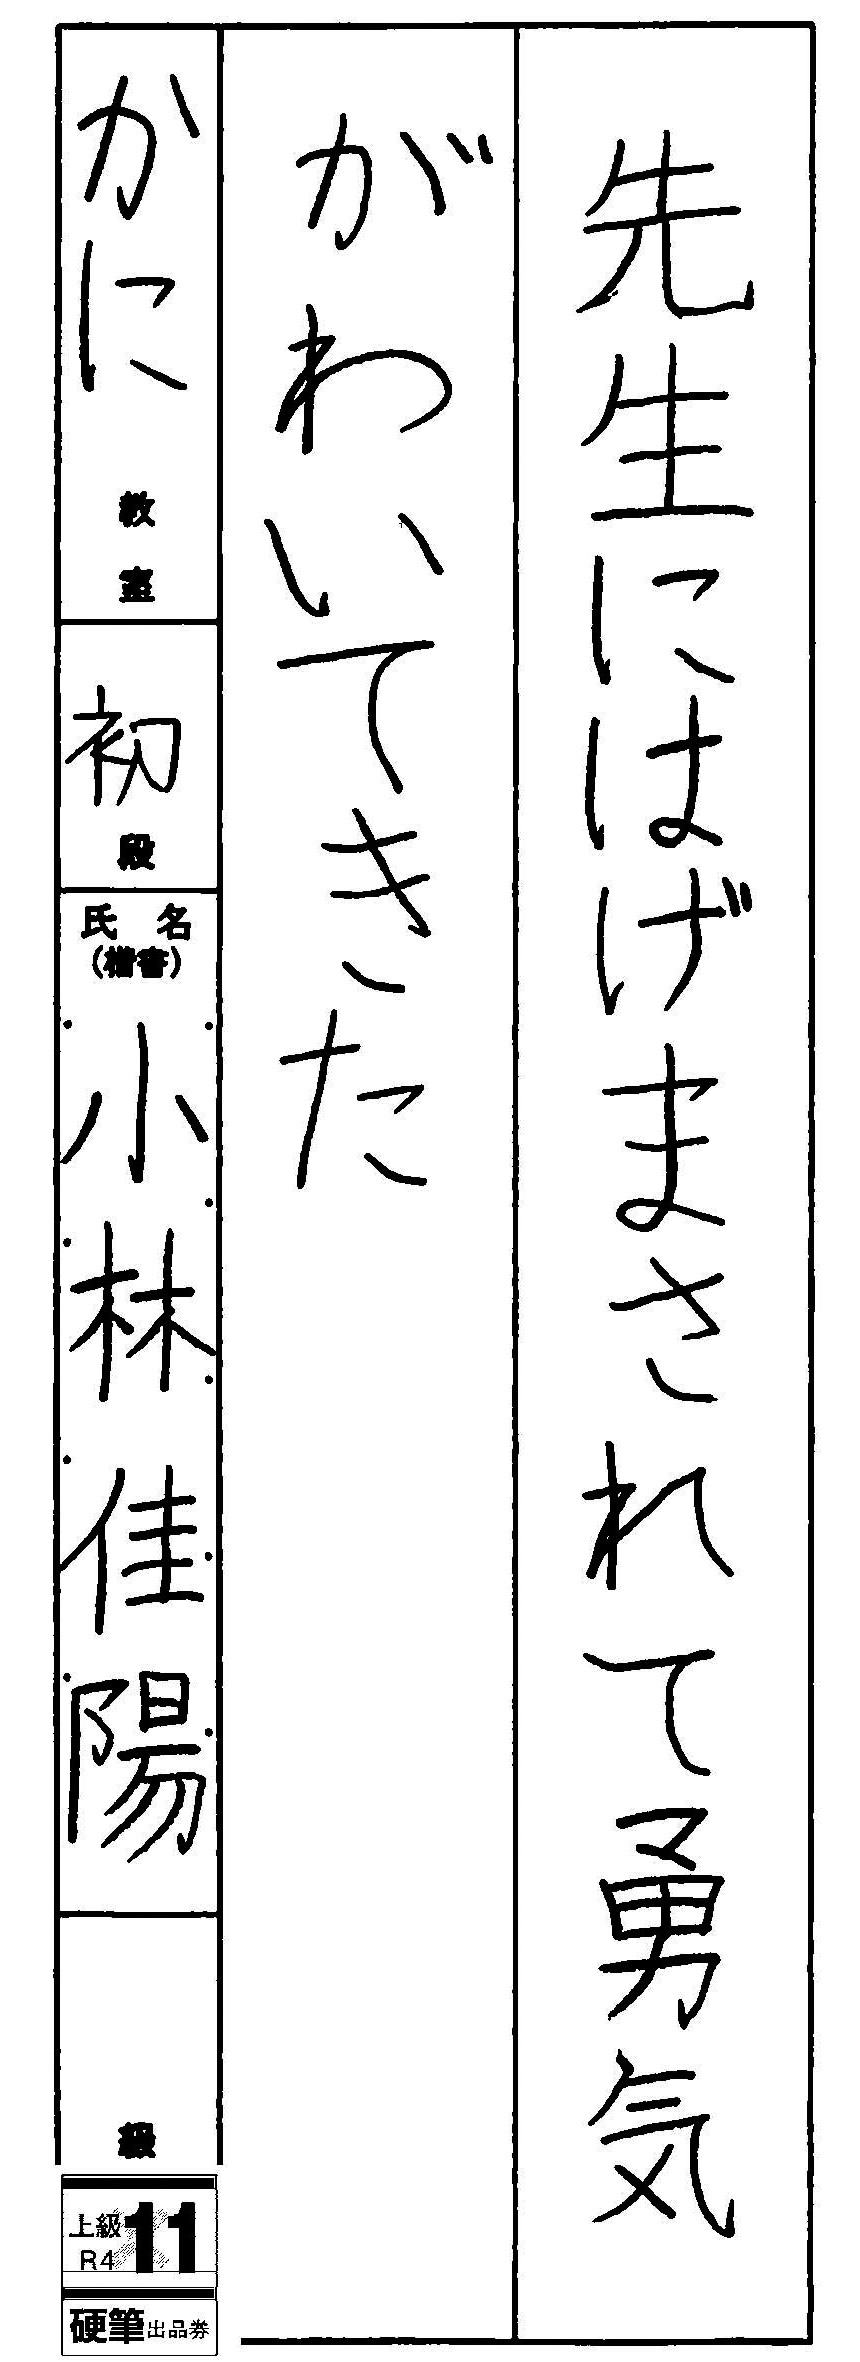 先生にはげまされて勇気
がわいてきた
かに教室
初段
氏名
(楷書)
小林佳陽
級
上級
R4
11
硬筆出品券